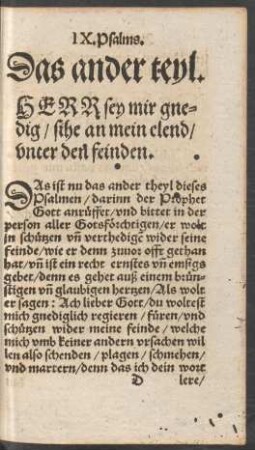 IX. Psalms.
Das ander teyl.
HERR sey mir gne-
dig / sihe an mein elend /
vnter den feinden.
DAs ist nu das ander theyl dieses
Psalmen / darinn der Prophet
Gott anrüffet / vnd bittet in der
person aller Gotsförchtigen / er wolt
jn schützen vñ verthedigē wider seine
feinde / wie er denn zuuor offt gethan
hat / vñ ist ein recht ernstes vñ emsigs
gebet / denn es gehet auß einem brün-
stigen vñ glaubigen hertzen / Als wolt
er sagen : Ach lieber Gott / du woltest
mich gnediglich regieren / füren / vnd
schützen wider meine feinde / welche
mich vmb keiner andern vrsachen wil
len also schenden / plagen / schmehen /
vnd martern / denn das ich dein wort
D lere /